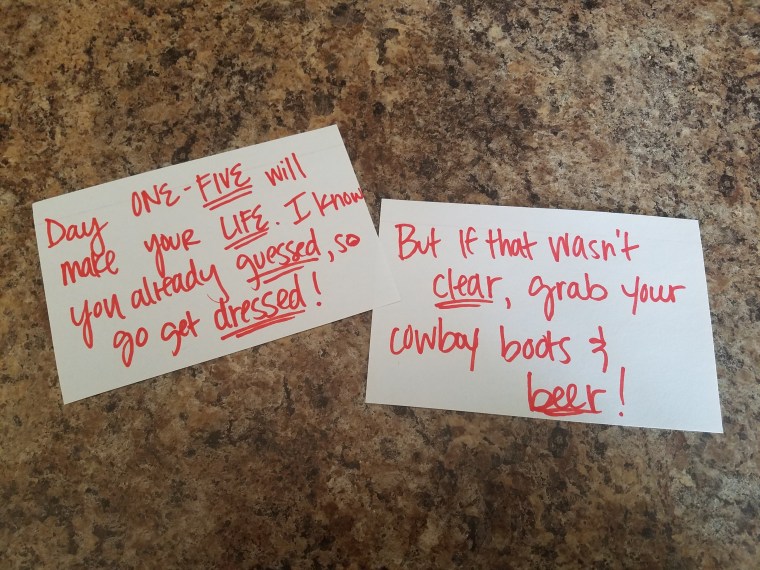 Day ONE-FIVE will
make your LIFE. I know
you already guessed, so
go get dressed!
But if that wasn't
clear, grab your
cowboy boots &
beer!